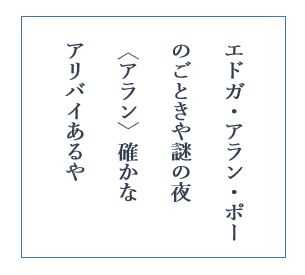 エドガ・アラン・ポー
のごときや謎の夜
〈アラン〉確かな
アリバイあるや